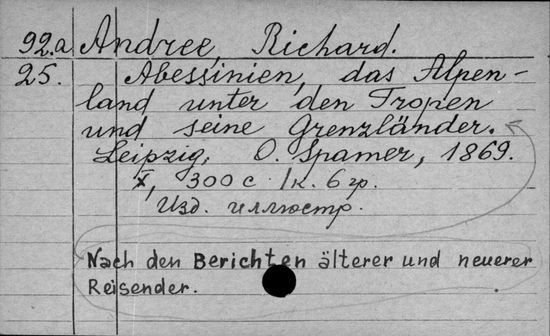 92.a Andree, Richard.
25. Abessinien, das Alpen-
land unter den Tropen
und seine Grenzländer.
Leipzig, O. Spamer, 1869.
X, 300 с. 1 к. 6 гр.
Изд. иллюстр.
Nach den Berichten älterer und neuerer
Reisender.